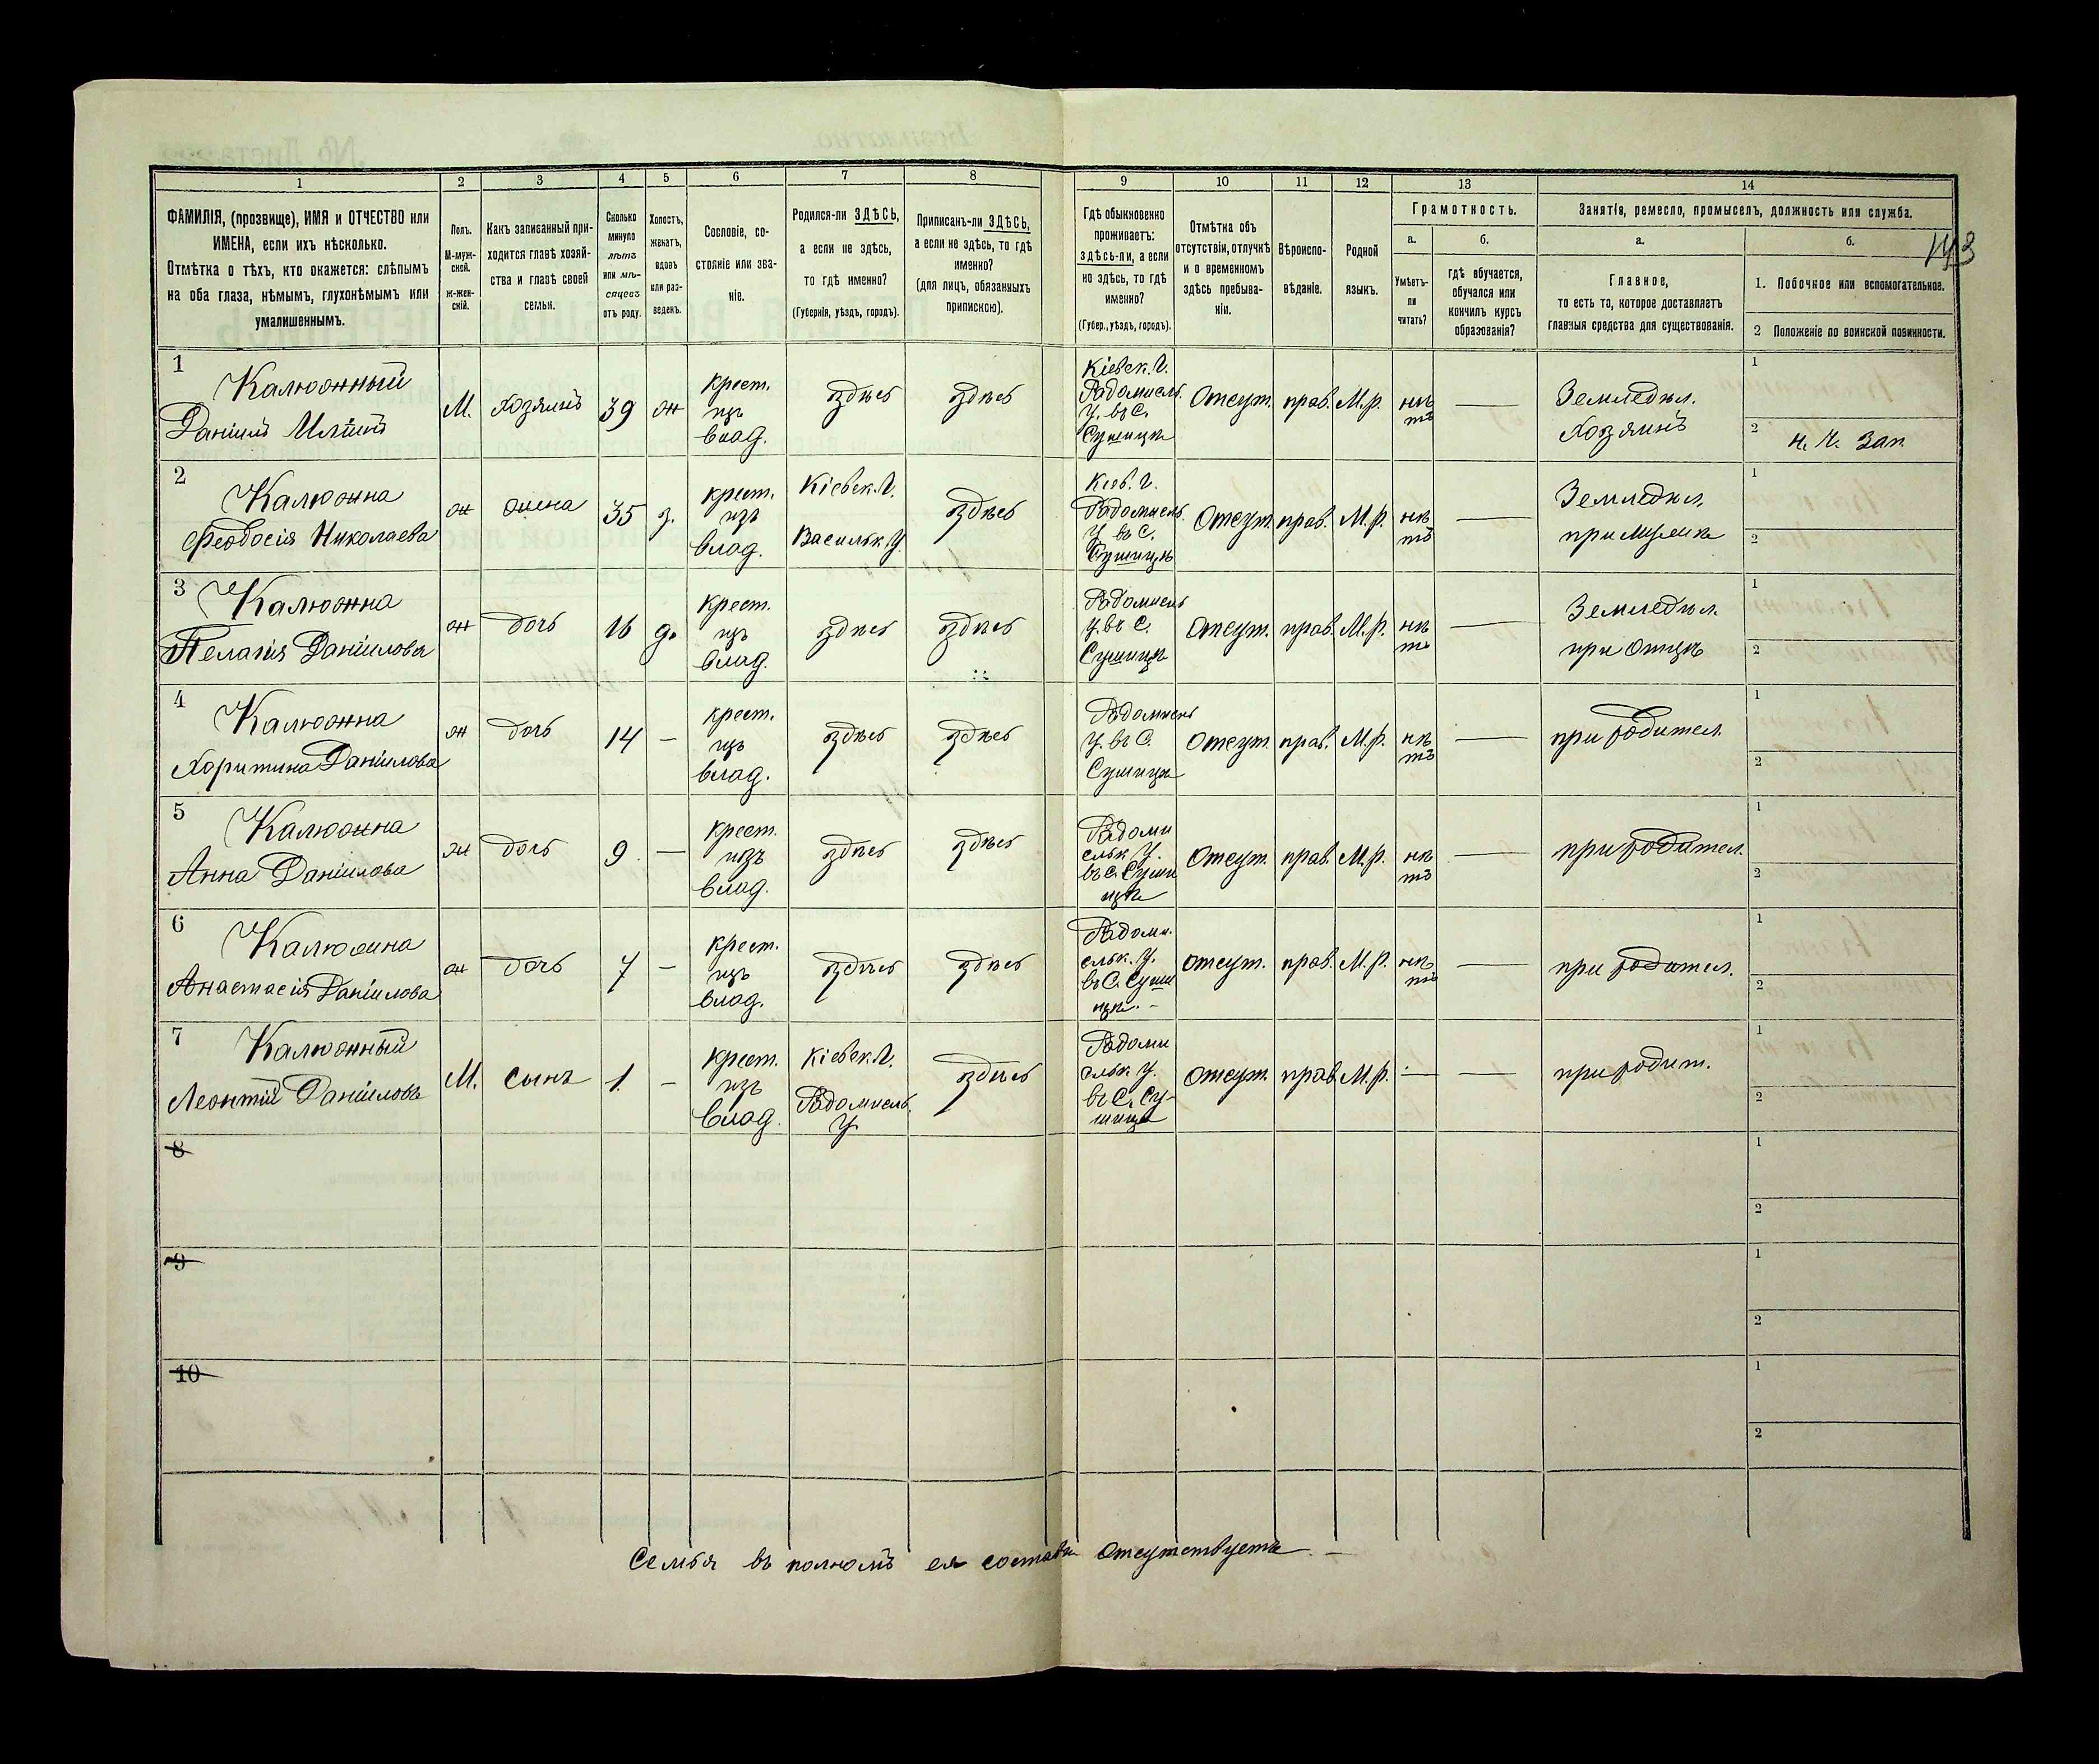 143
1 2 3 4 5 6 7 8 9 10 11 12 13 14
ФАМИЛІЯ, (прозвище), ИМЯ и ОТЧЕСТВО или
ИМЕНА, если ихъ нѣсколько.
Отмѣтка о тѣхъ, кто окажется: слѣпымъ
на оба глаза, нѣмымъ, глухонѣмымъ или
умалишеннымъ.
Полъ.
М-муж-
ской.
ж-жен-
скій.
Какъ записанный при-
ходится главѣ хозяй-
ства и главѣ своей
семьи.
Сколько
минуло
лѣтъ
или мѣ-
сяцевъ
отъ роду.
Холостъ,
женатъ,
вдовъ
или раз-
веденъ.
Сословіе, со-
стояніе или зва-
ніе.
Родился-ли ЗДѢСЬ,
а если не здѣсь,
то гдѣ именно?
(Губернія, уѣздъ, городъ).
Приписанъ-ли ЗДѢСЬ,
а если не здѣсь, то гдѣ
именно?
(для лицъ, обязанныхъ
припискою).
Гдѣ обыкновенно
проживаетъ:
здѣсь-ли, а если
не здѣсь, то гдѣ
именно?
(Губер., уѣздъ, городъ).
Отмѣтка объ
отсутствіи, отлучкѣ
и о временномъ
здѣсь пребыва-
ніи.
Вѣроиспо-
вѣданіе.
Родной
языкъ.
Грамотность.
а. б.
Умѣетъ-
ли
читать?
гдѣ обучается,
обучался или
кончилъ курсъ
образованія?
Занятія, ремесло, промыселъ, должность или служба.
а. б.
Главное,
то есть то, которое доставляетъ
главныя средства для существованія.
1. Побочное или вспомогательное.
2 Положеніе по воинской повинности.
1
Калюжный
Даніилъ
М.
хозяинъ
39
ж
крест.
изъ
влад.
здѣсь
здѣсь
Кіевск. Г.
Радомысль.
У. въ С.
Отсут.
прав.
М.р.
нѣ
тъ
—
Земледѣл.
Хозяинъ
1
2
н. ч. зап
2
Калюжна
Феодосія Николаева
ж
жена
35
з.
крест.
изъ
влад.
Кіевск. Г.
Васильк. У.
здѣсь
Кіев. Г.
Радомысль.
У. въ С.
Отсут.
прав.
М.р.
нѣ
тъ
—
Земледѣл.
при мужѣ
1
2
3
Калюжна
Пелагія Даніилова
ж
дочь
16
д.
крест.
изъ
влад.
здѣсь
здѣсь
Радомысль
у. въ С.
Отсут.
прав.
М.р.
нѣ
тъ
—
Земледѣл.
при отцѣ
1
2
4
Калюжна
Харитина Даніилова
ж
дочь
14
—
крест.
изъ
влад.
здѣсь
здѣсь
Радомысль
У. въ С.
Отсут.
прав.
М.р.
нѣ
тъ
—
при родител.
1
2
5
Калюжна
Анна Даніилова
ж
дочь
9
—
крест.
изъ
влад.
здѣсь
здѣсь
Радоми
сльк У.
въ С. Суши
цѣ
Отсут.
прав.
М.р.
нѣ
тъ
—
при родител.
1
2
6
Калюжна
Анастасія Даніилова
ж
дочь
7
—
крест.
изъ
влад.
здѣсь
здѣсь
Радоми.
сльк. У.
въ С. Суши
цѣ. -
отсут.
прав.
М.р.
нѣ
тъ
—
при родител.
1
2
7
Калюжный
Леонтій Даніиловъ
М.
сынъ
1.
—
крест.
изъ
влад.
Кіевск. Г.
Радомысль.
У.
здѣсь
Радоми
сльк. у.
въ С. Су-
шицѣ
отсут.
прав.
М.р.
—
—
при родит.
1
2
8
1
2
9
1
2
10
1
2
Семья въ полномъ ея составѣ отсутствуетъ. —